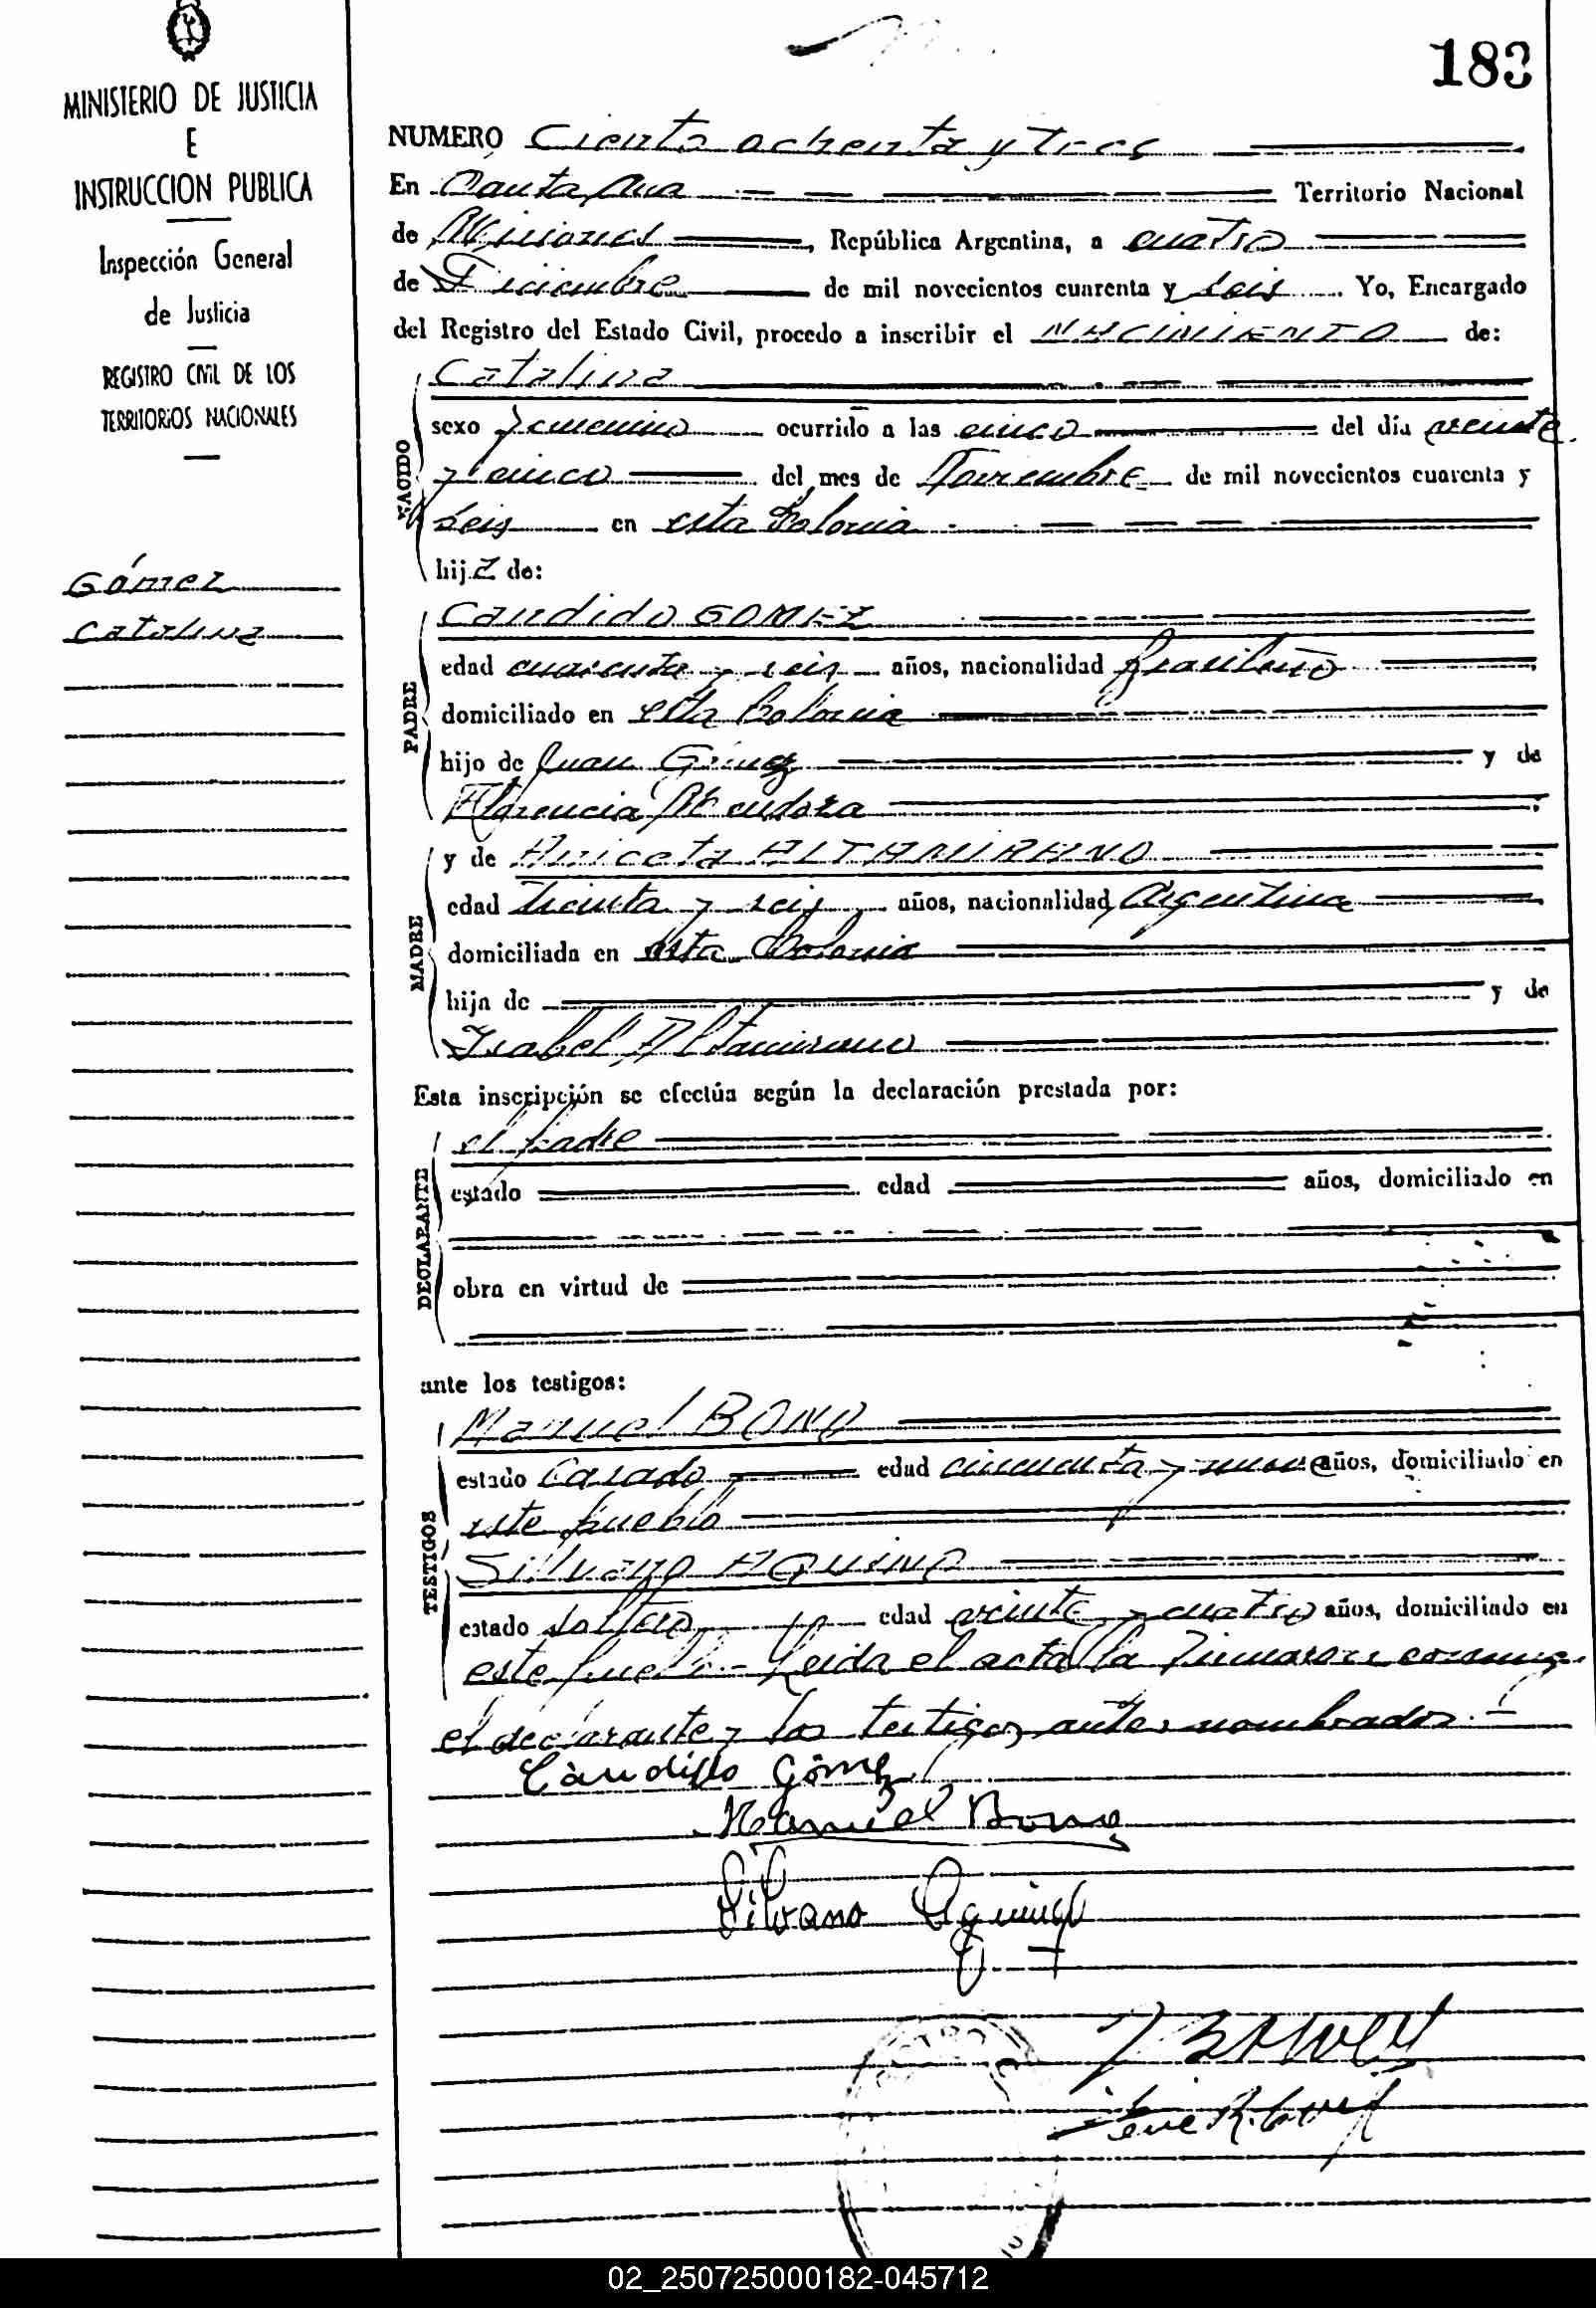 183
MINISTERIO DE JUSTICIA
E
INSTRUCCION PUBLICA
Inspección General
de Justicia
REGISTRO CIVIL DE LOS
TERRITORIOS NACIONALES
Gómez
Catalina
NUMERO Ciento ochenta y tres
En Santa Ana Territorio Nacional
de Misiones, República Argentina, a cuatro
de Diciembre de mil novecientos cuarenta y seis. Yo, Encargado
del Registro del Estado Civil, procedo a inscribir el NACIMIENTO de:
NACIDO
Catalina
sexo femenino ocurrido a las cinco del día veinte
y cinco del mes de Noviembre de mil novecientos cuarenta y
seis en esta Colonia
hija de:
PADRE
Candido GOMEZ
edad cuarenta y seis años, nacionalidad brasileño
domiciliado en esta Colonia
hijo de Juan Gómez y de
Florencia Mendoza
MADRE
y de Aniceta ALTAMIRANO
edad treinta y seis años, nacionalidad Argentina
domiciliada en esta Colonia
hija de y de
Isabel Altamirano
Esta inscripción se efectúa según la declaración prestada por:
DECLARANTE
el padre
estado edad años, domiciliado en
obra en virtud de
ante los testigos:
TESTIGOS
Manuel BONO
estado Casado edad cincuenta y nueve años, domiciliado en
este pueblo
Silvano AQUINO
estado soltero edad veinte y cuatro años, domiciliado en
este pueblo.- Leida el acta la firmaron conmigo
el declarante y los testigos antes nombrados.-
Candido Gómez
Manuel Bono
Silvano Aquino
02_250725000182-045712